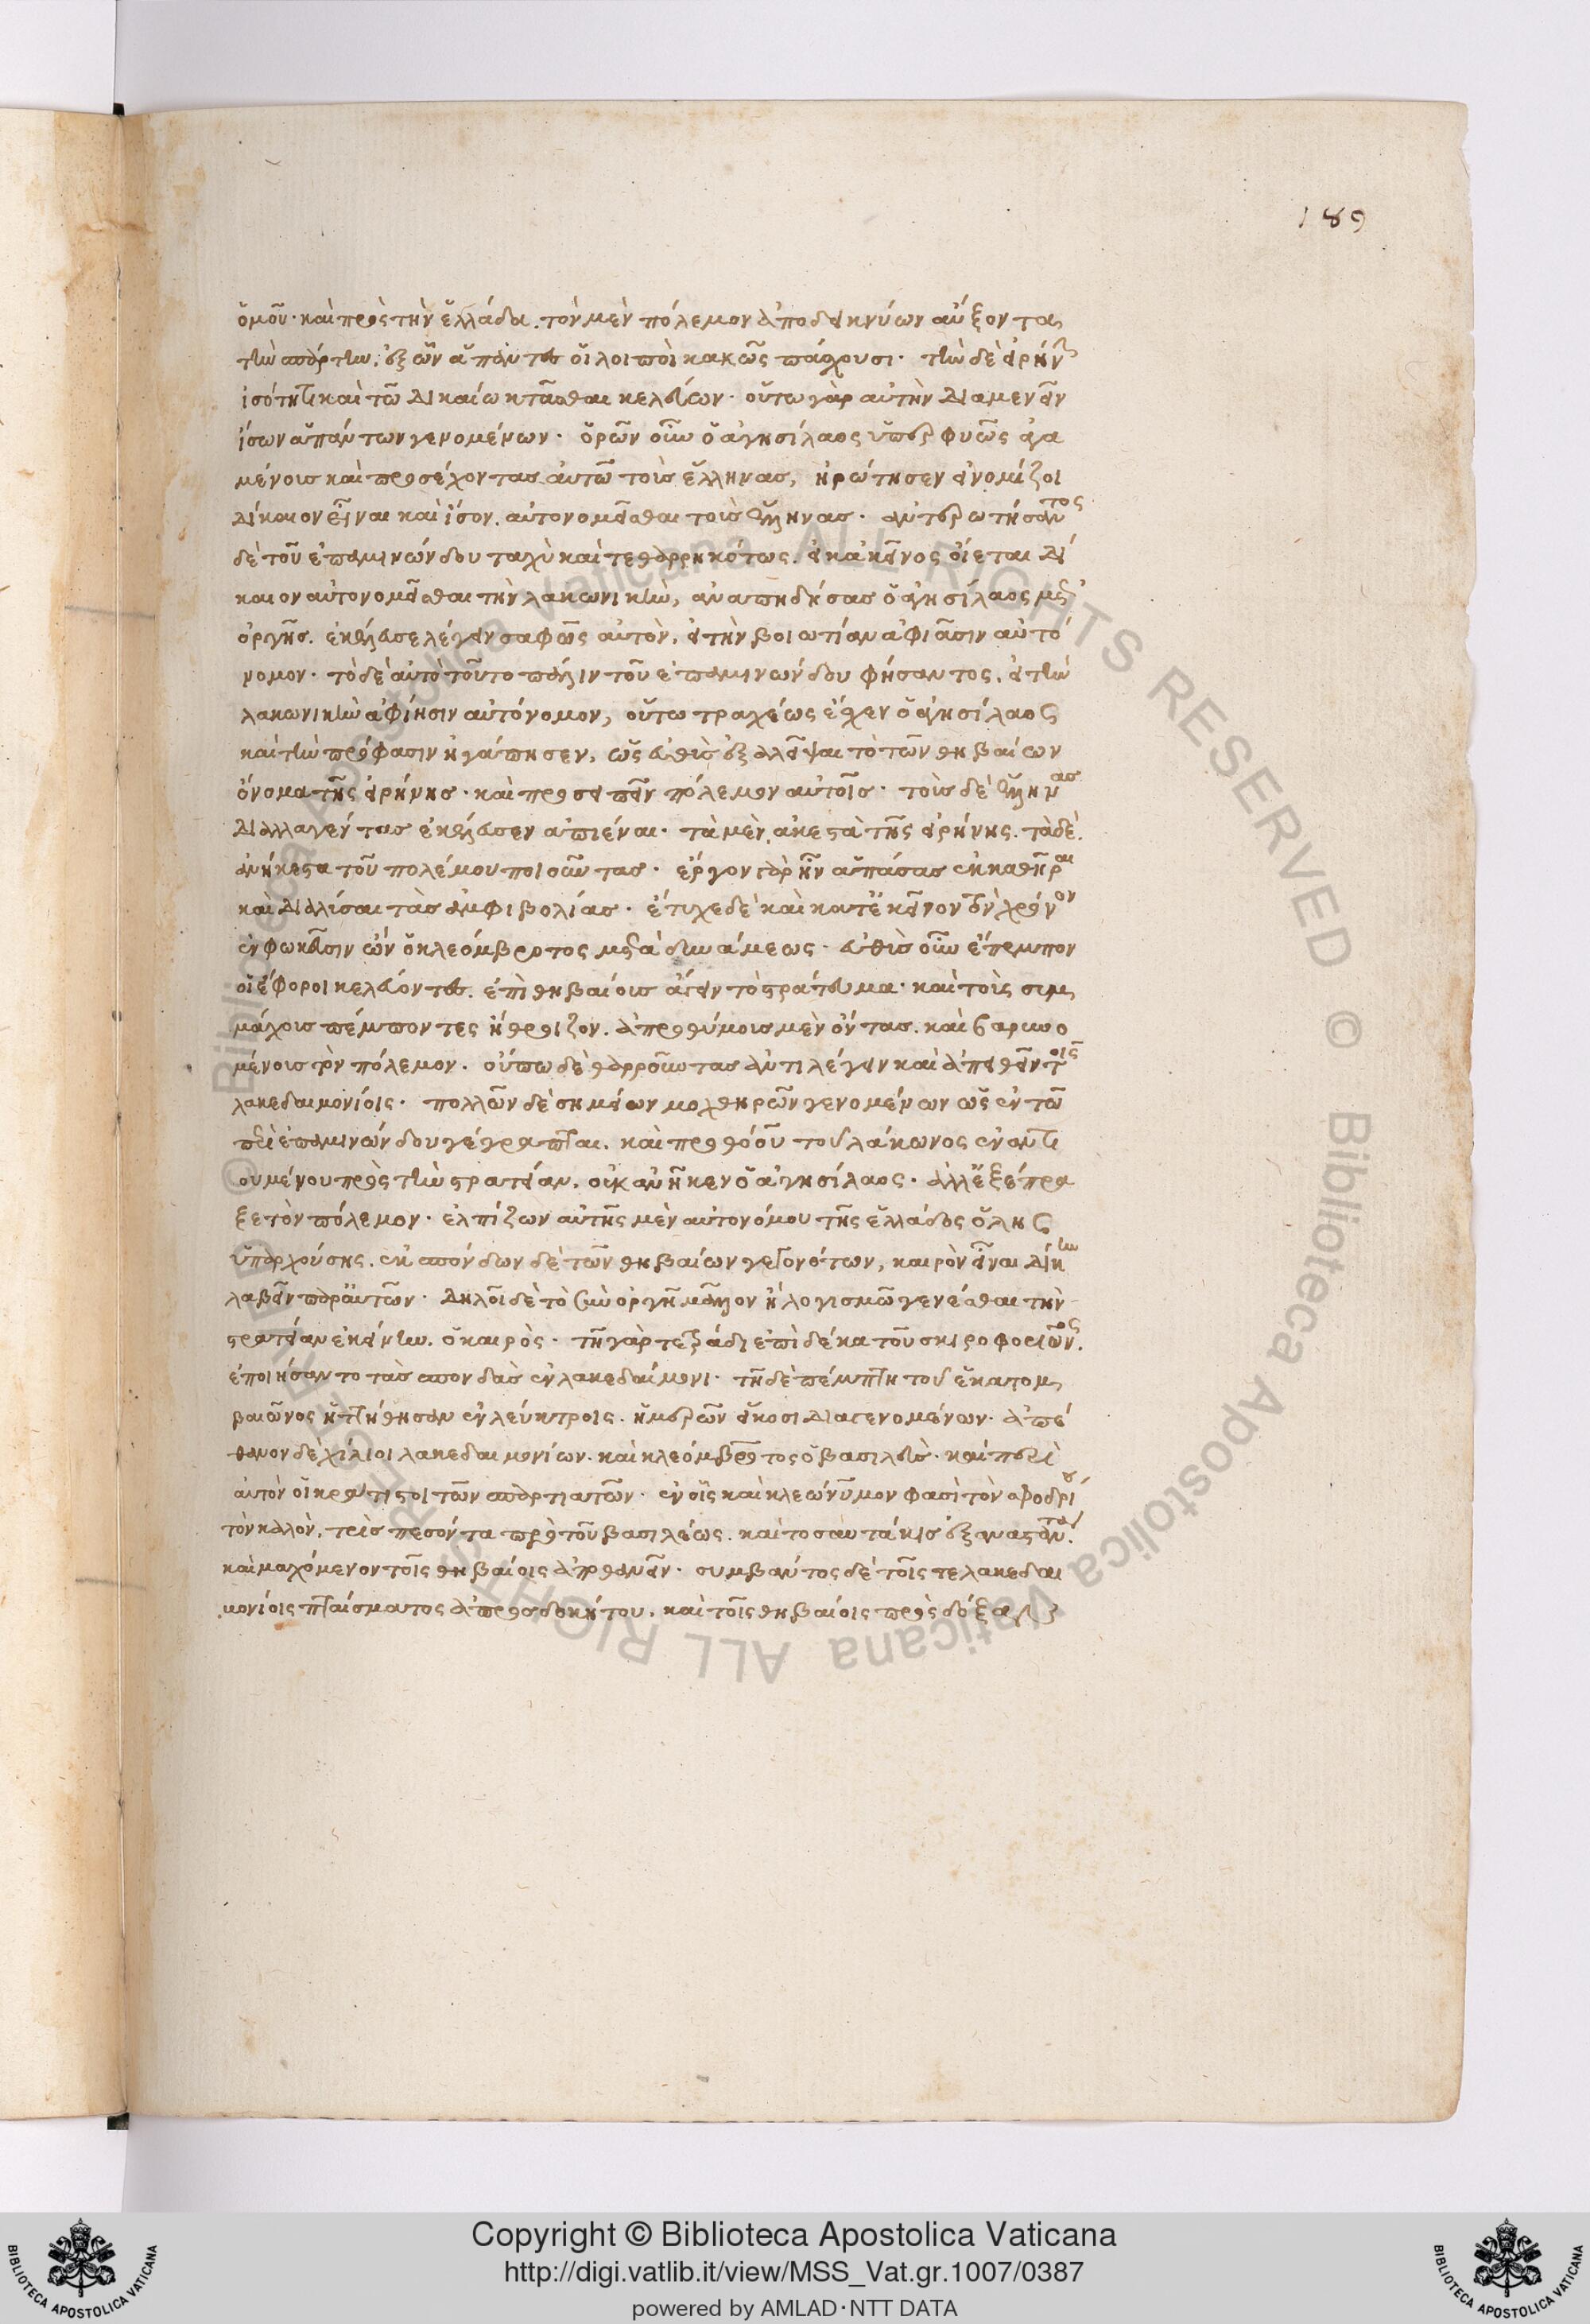 189
ὁμοῦ· καὶ πρὸς τὴν ἑλλάδα. τὸν μὲν πόλεμον ἀποδεικνύων αὔξοντα
τὴν σπάρτην· ἐξ ὧν ἅπαντες οἱ λοιποὶ κακῶς πάσχουσι· τὴν δὲ εἰρήνην
ἰσότητι καὶ τῶ δικαίω κτᾶσθαι κελεύων· οὕτω γὰρ αὐτὴν διαμενεῖν
ἴσων ἁπάντων γενομένων· ὁρῶν οὖν ὁ ἀγησίλαος ὑπερφυῶς ἀγα
μένοις καὶ προσέχοντας αὐτῶ τοὺς ἕλληνας, ἠρώτησεν εἰ νομίζοι
δίκαιον εἶναι καὶ ἴσον. αὐτονομεῖσθαι τοὺς ἕλληνας· ἀντερωτήσαντος
δὲ τοῦ ἐπαμινώνδου ταχὺ καὶ τεθαρρηκότως. εἰ κἀκεῖνος οἴεται δί
καιον αὐτονομεῖσθαι τὴν λακωνικὴν, ἀναπηδήσας ὁ ἀγησίλαος μετ᾽
ὀργῆς. ἐκέλευσε λέγειν σαφῶς αὐτὸν. εἰ τὴν βοιωτίαν ἀφίησιν αὐτό
νομον· τὸ δὲ αὐτὸ τοῦτο πάλιν τοῦ ἐπαμινώνδου φήσαντος. εἰ τὴν
λακωνικὴν ἀφίησιν αὐτόνομον, οὕτω τραχέως ἔσχεν ὁ ἀγησίλαος
καὶ τὴν πρόφασιν ἠγάπησεν, ὡς εὐθὺς ἐξαλεῖψαι τὸ τῶν θηβαίων
ὄνομα τῆς εἰρήνης· καὶ προσειπεῖν πόλεμον αὐτοῖς· τοὺς δὲ ἕλληνας
διαλλαγέντας ἐκέλευσεν ἀπιέναι· τὰ μὲν ἀκεστὰ τῆς εἰρήνης. τὰ δὲ
ἀνήκεστα τοῦ πολέμου ποιοῦντας· ἔργον γὰρ ἦν ἁπάσας ἐκκαθῆραι
καὶ διαλῦσαι τὰς ἀμφιβολίας· ἔτυχε δὲ καὶ κατ᾽ ἐκεῖνον τὸν χρόνον
ἐν φωκεῦσιν ὢν ὁ κλεόμβροτος μετὰ δυνάμεως· εὐθὺς οὖν ἔπεμπον
οἱ ἔφοροι κελεύοντες. ἐπὶ θηβαίους ἄγειν τὸ στράτευμα· καὶ τοὺς συμ
μάχους πέμποντες ἤθροιζον. ἀπροθύμους μὲν ὄντας. καὶ βαρυνο
μένους τὸν πόλεμον· οὔπω δὲ θαρροῦντας ἀντιλέγειν καὶ ἀπειθεῖν τοῖς
λακεδαιμονίοις· πολλῶν δὲ σημείων μοχθηρῶν γενομένων ὡς ἐν τῶ
περὶ ἐπαμινώνδου γέγραπται. καὶ προθόου τοῦ λάκωνος ἐναντι
ουμένου πρὸς τὴν στρατείαν. οὐκ ἀνῆκεν ὁ ἀγησίλαος· ἀλλ᾽ ἐξέπρα
ξε τὸν πόλεμον· ἐλπίζων αὐτῆς μὲν αὐτονόμου τῆς ἑλλάδος ὅλης
ὑπαρχούσης. ἐκσπόνδων δὲ τῶν θηβαίων γεγονότων, καιρὸν εἶναι δίκην
λαβεῖν παρ᾽ αὐτῶν· δηλοῖ δὲ τὸ σὺν ὀργῆ μᾶλλον ἢ λογισμῶ γενέσθαι τὴν
στρατείαν ἐκείνην. ὁ καιρὸς· τῆ γὰρ τετράδι ἐπὶ δέκα τοῦ σκιροφοριῶνος
ἐποιήσαντο τὰς σπονδὰς ἐν λακεδαίμονι· τῆ δὲ πέμπτη τοῦ ἑκατομ
βαιῶνος ἡττήθησαν ἐν λεύκτροις. ἡμερῶν εἴκοσι διαγενομένων· ἀπέ
θανον δὲ χίλιοι λακεδαιμονίων. καὶ κλεόμβροτος ὁ βασιλεὺς· καὶ περὶ
αὐτὸν οἱ κράτιστοι τῶν σπαρτιατῶν· ἐν οἷς καὶ κλεώνυμον φασὶ τὸν σφοδρί
τὸν καλὸν, τρὶς πεσόντα πρὸ τοῦ βασιλέως. καὶ τοσαυτάκις ἐξαναστάντα.
καὶ μαχόμενον τοῖς θηβαίοις ἀποθανεῖν· συμβάντος δὲ τοῖς τε λακεδαι
μονίοις πταίσματος ἀπροσδοκήτου. καὶ τοῖς θηβαίοις πρὸς δόξαν
Copyright © Biblioteca Apostolica Vaticana
http://digi.vatlib.it/view/MSS_Vat.gr.1007/0387
powered by AMLAD·NTT DATA